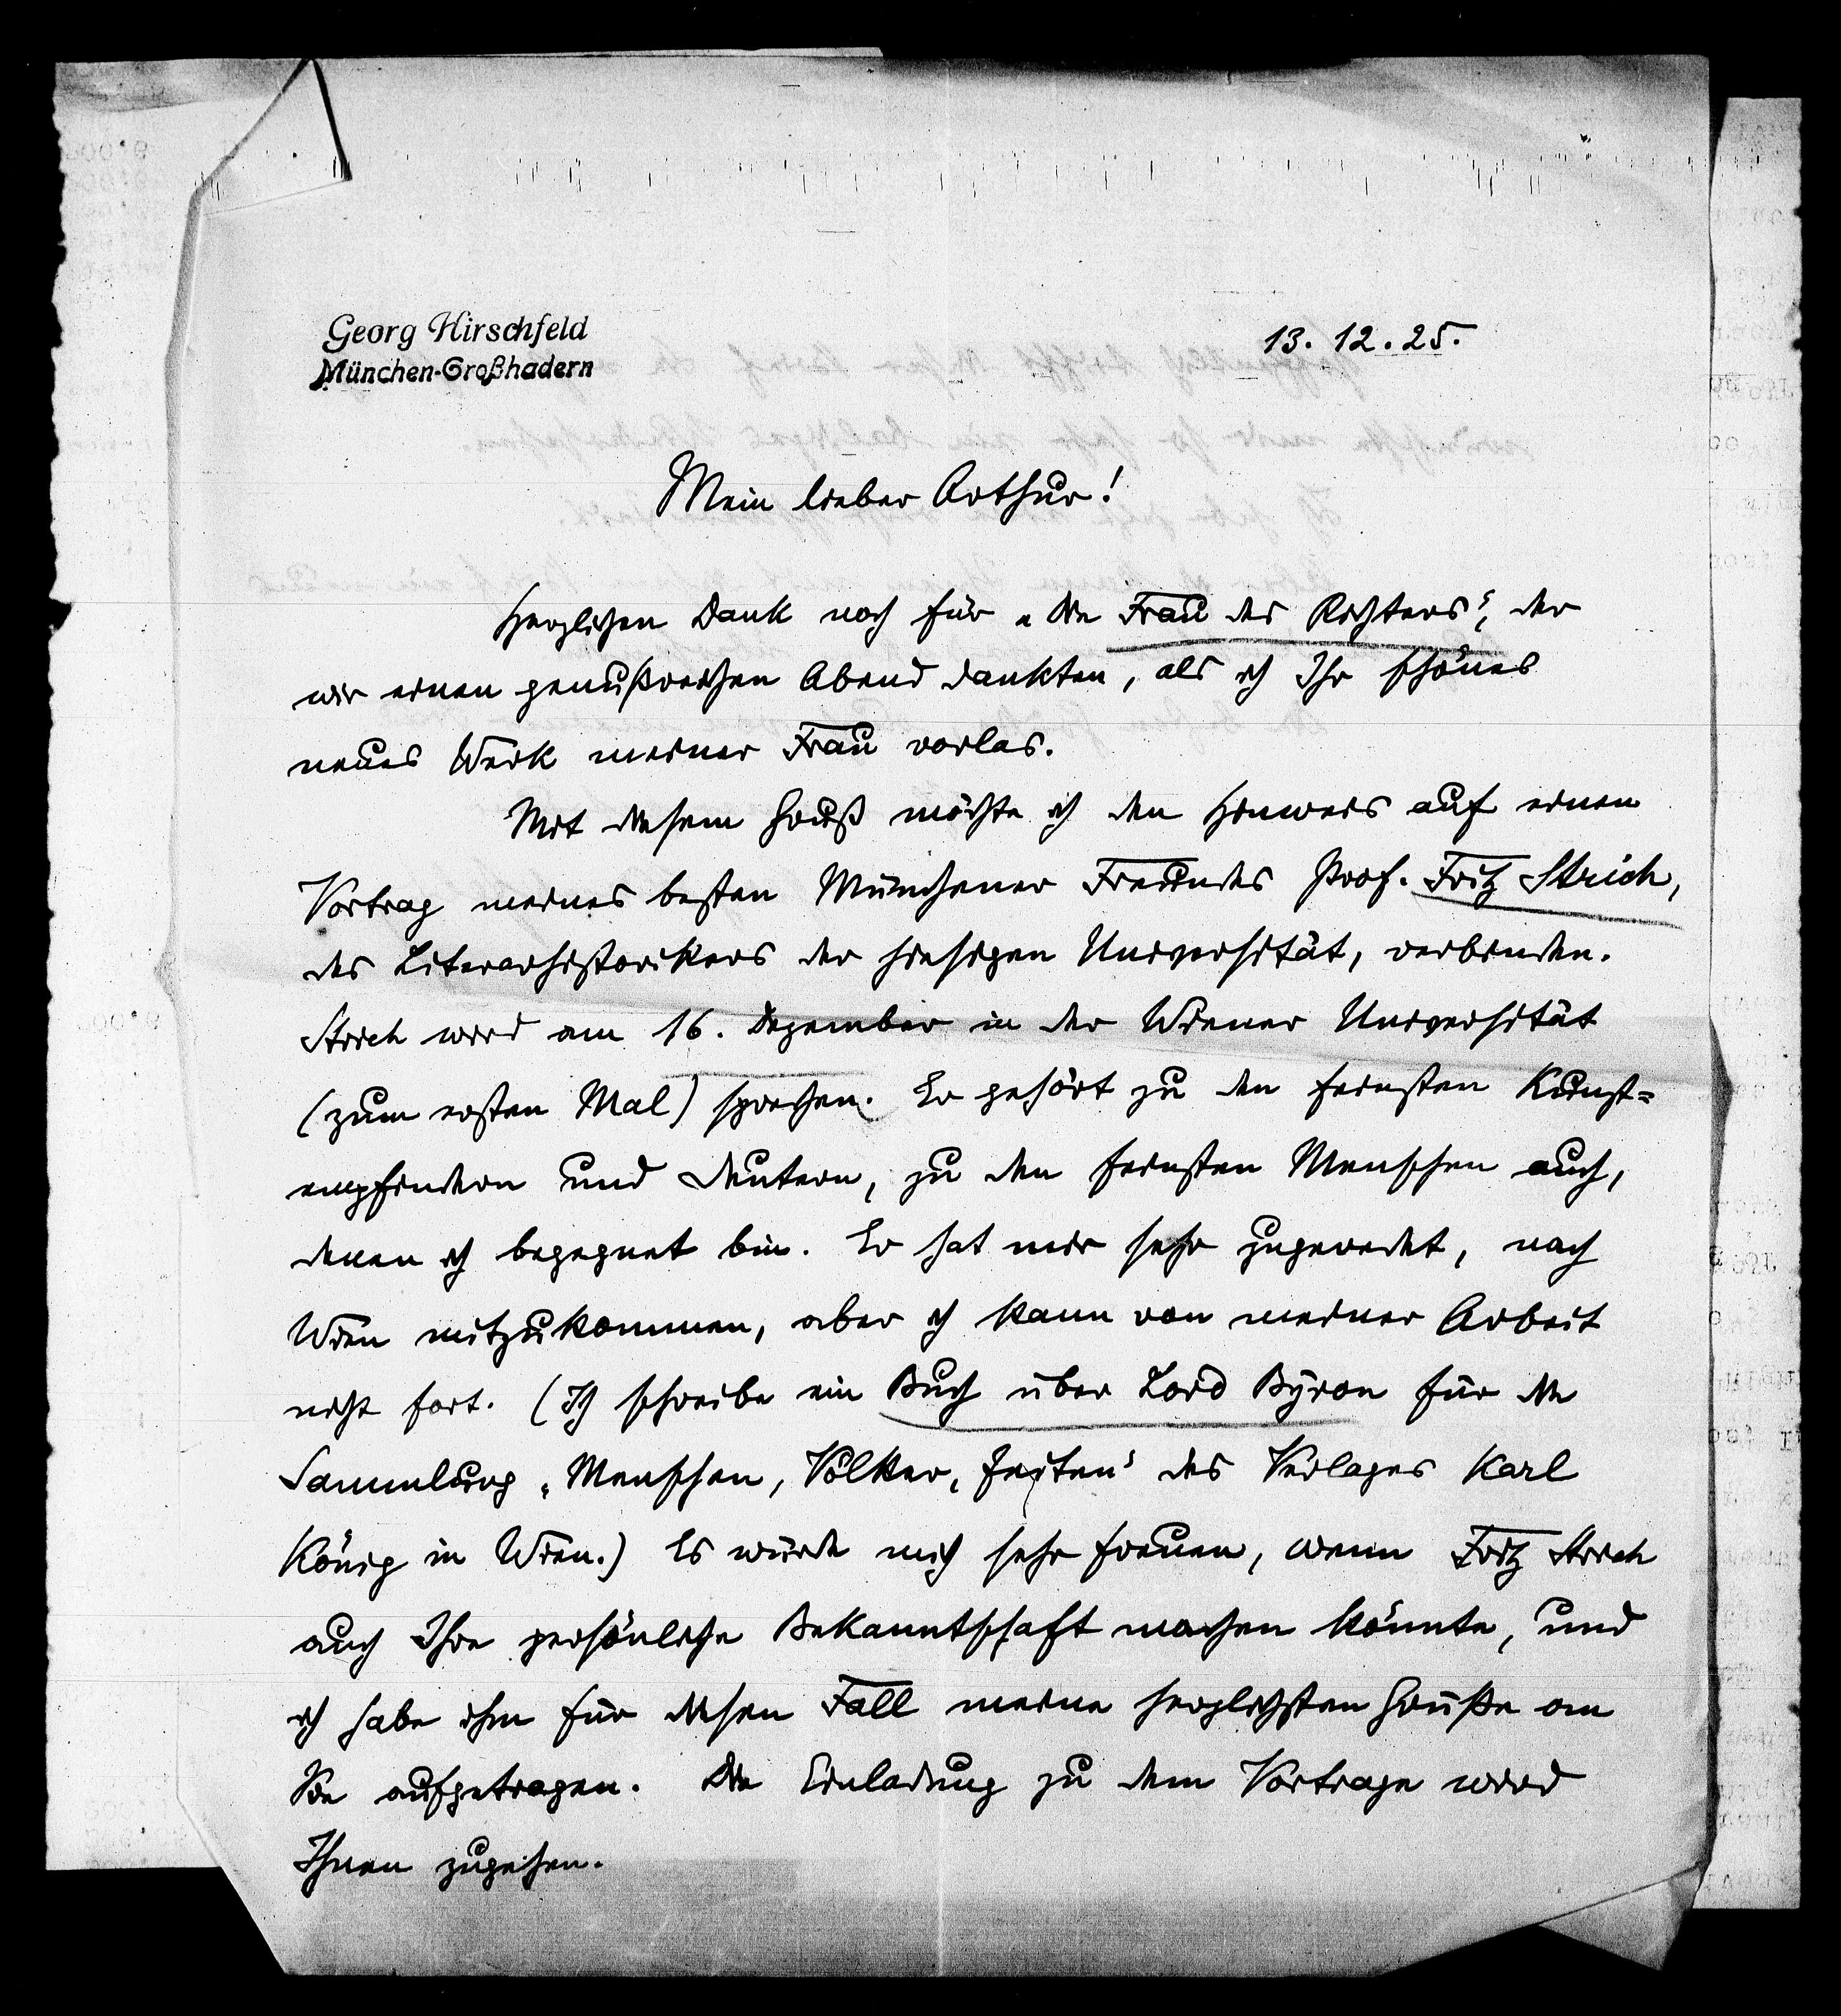 Georg Hirschfeld
München-Großhadern
13. 12. 25.
Mein lieber Arthur!
Herzlichen Dank noch für „Die Frau des Richters“, der
wir einen genußreichen Abend dankten, als ich Ihr schönes
neues Werk meiner Frau vorlas.
Mit diesem Gruß möchte ich den Hinweis auf einen
Vortrag meines besten Münchener Freundes Prof. Fritz Strich,
des Literarhistorikers der hiesigen Universität, verbinden.
Strich wird am 16. Dezember in der Wiener Universität
(zum ersten Mal) sprechen. Er gehört zu den feinsten Kunst=
empfindern und Deutern, zu den feinsten Menschen auch,
denen ich begegnet bin. Er hat mir sehr zugeredet, nach
Wien mitzukommen, aber ich kann von meiner Arbeit
nicht fort. (Ich schreibe ein Buch über Lord Byron für die
Sammlung „Menschen, Völker, Zeiten“ des Verlages Karl
König in Wien.) Es würde mich sehr freuen, wenn Fritz Strich
auch Ihre persönliche Bekanntschaft machen könnte, und
ich habe ihm für diesen Fall meine herzlichsten Grüße an
Sie aufgetragen. Die Einladung zu dem Vortrage wird
Ihnen zugehen.